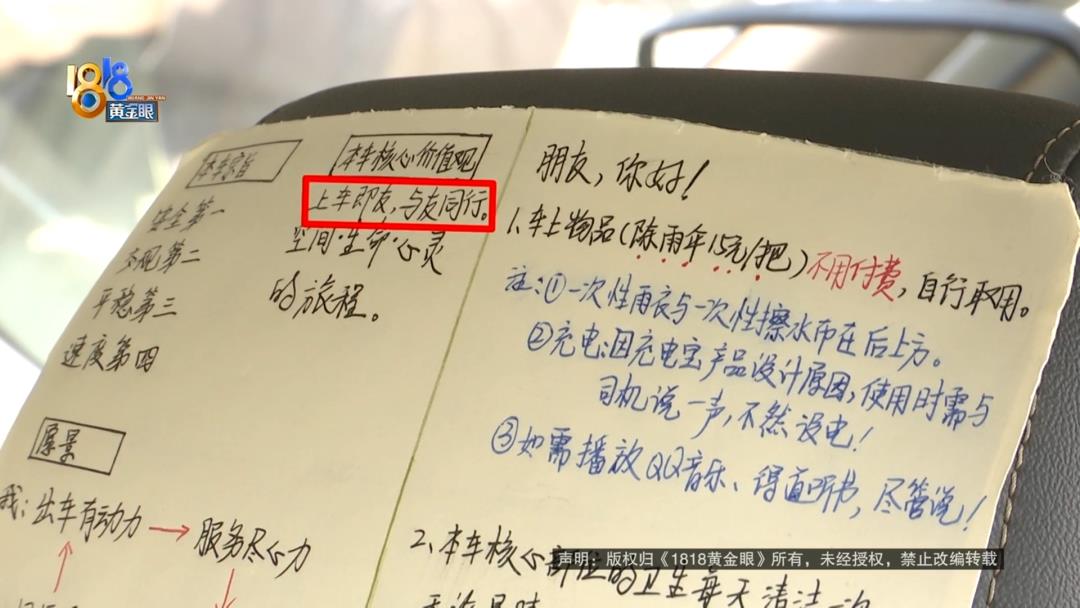 1818
HUANG JIN YAN
黄金眼
本车宗旨
安全第一
平稳第三
速度第四
愿景
我：出车有动力
服务尽心力
本车核心价值观
上车即友，与友同行。
空间·生命·心灵
的旅程。
朋友，你好！
1、车上物品（除雨伞15元/把）不用付费，自行取用。
注：①一次性雨衣与一次性擦水布在后上方。
②充电：因充电宝产品设计原因，使用时需与
司机说一声，不然没电！
③如需播放QQ音乐、得道听书，尽管说！
2、本车核心部位的卫生每天清洁一次
声明：版权归《1818黄金眼》所有，未经授权，禁止改编转载